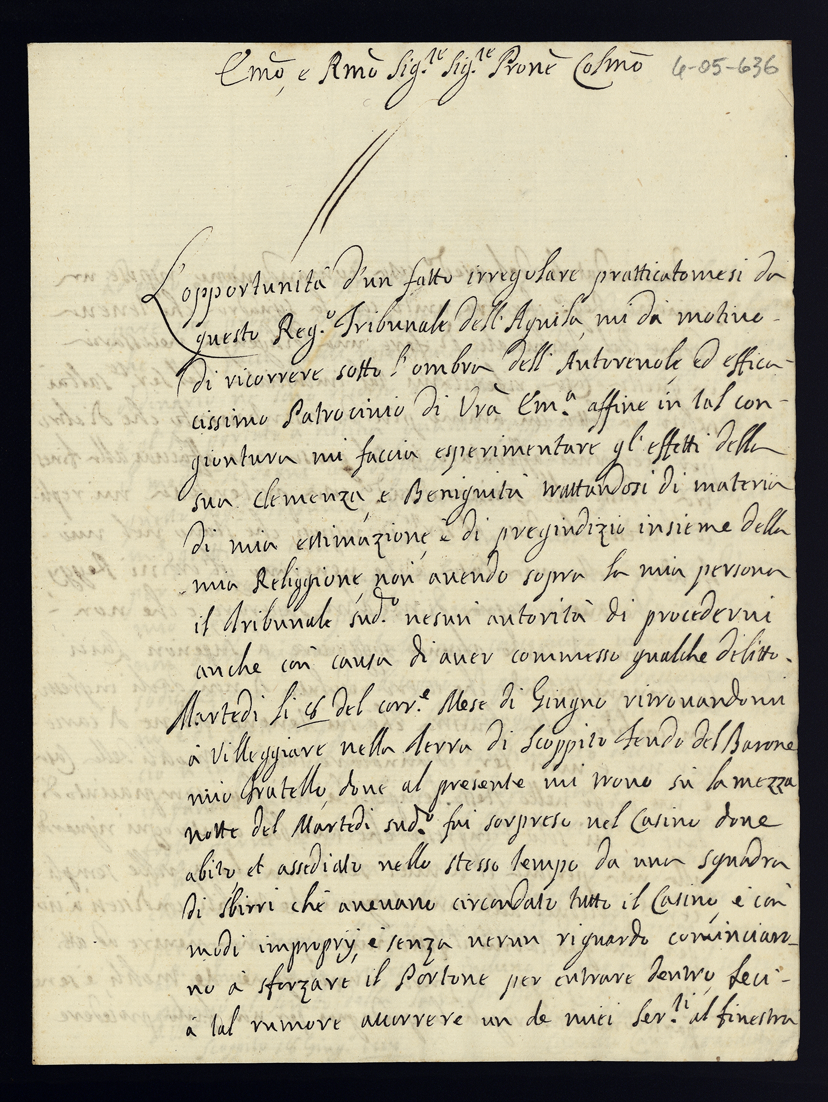 Emo, e Rmo Sig.re Sig.re Prone Colmo
6-05-636
L'opportunità d'un fatto irregolare pratticatomesi da
questo Reg.o Tribunale dell'Aquila, mi dà motivo
di ricorrere sotto l'ombra dell'Autorevole, ed effica-
cissimo Patrocinio di Vrã Em.a affine in tal con-
giontura mi faccia esperimentare gl'effetti della
sua clemenza, e Benignità trattandosi di materia
di mia estimazione, e di pregiudizio insieme della
mia Religgione, non avendo sopra la mia persona
il Tribunale sud.o nesun autorità di procedermi
anche con causa di aver commesso qualche delitto.
Martedì li del corr.e Mese di Giugno ritrovandomi
à Villeggiare nella Terra di Scoppito Feudo del Barone
mio Fratello, dove al presente mi trovo sù la mezza
notte del Martedì sud.o fui sorpreso nel Casino dove
abito et assediato nello stesso tempo da una squadra
di sbirri chè avevano circondato tutto il Casino, e con
modi improprÿ, e senza nerun riguardo cominciaro-
no à sforzare il Portone per entrare dentro, feci
à tal rumore accorrere un de miei Ser.ti al finestra